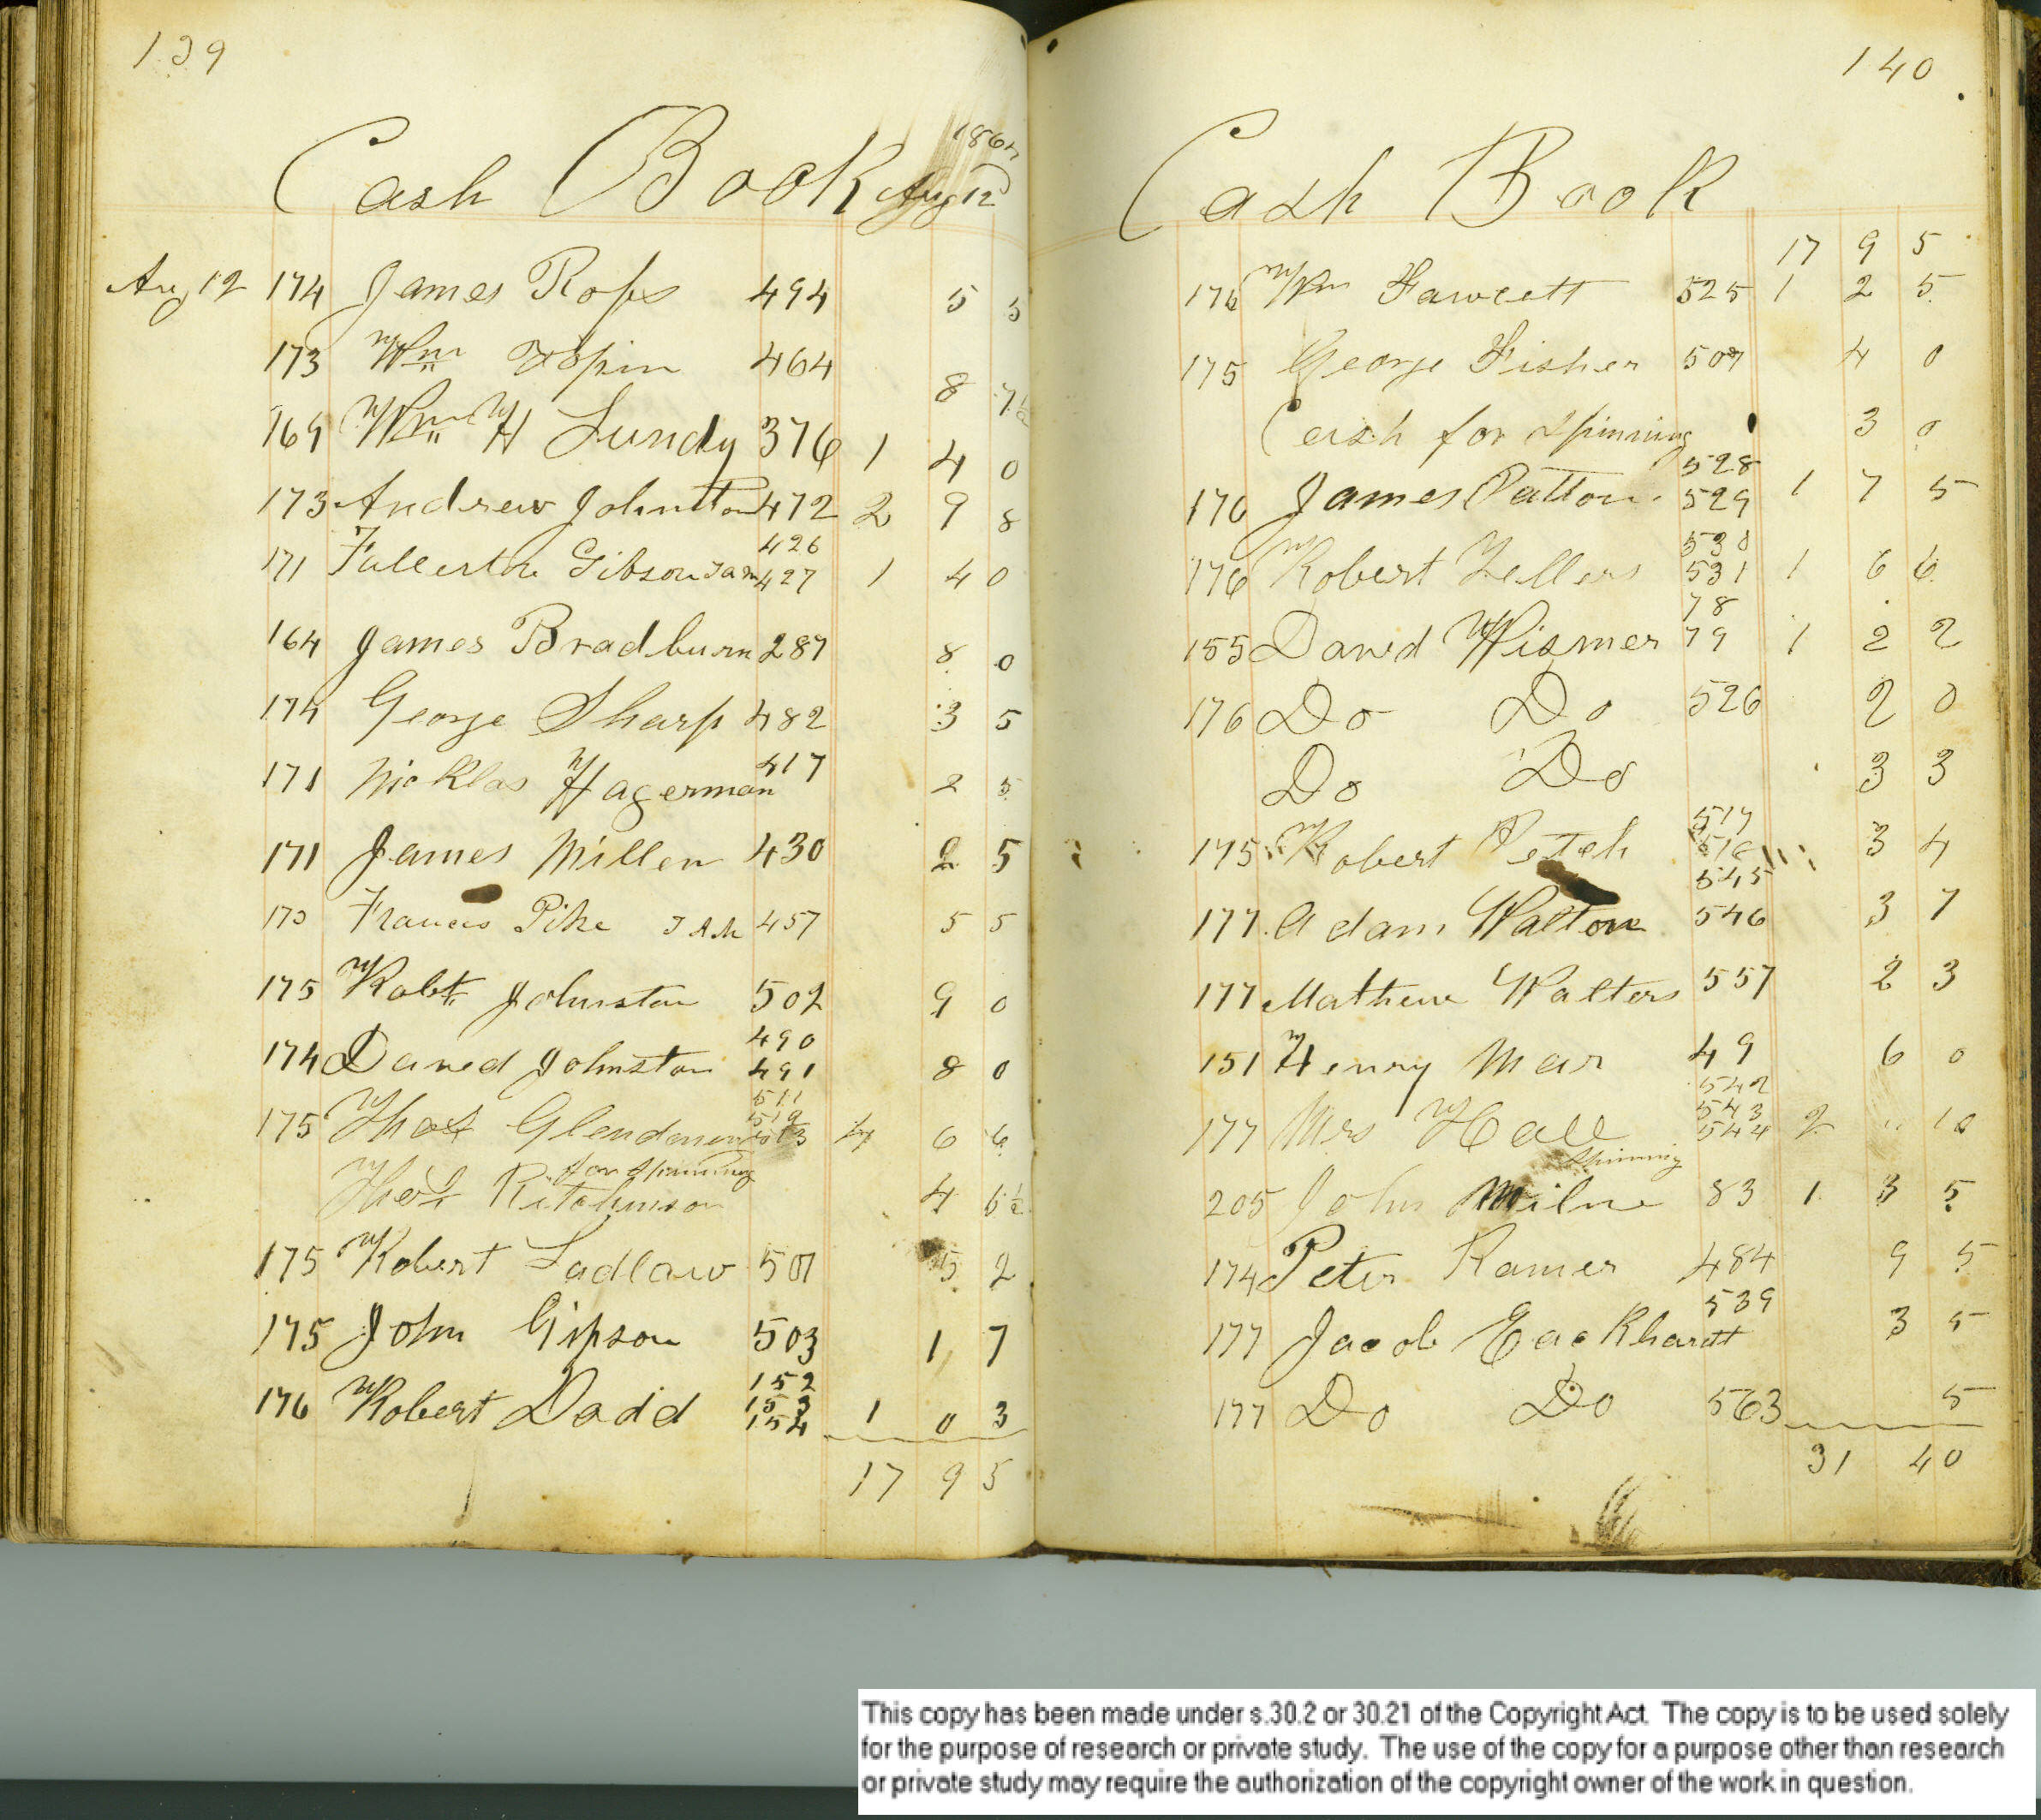 139
Cash Book Aug 12
Aug 12 174 James Ross 494 5 5
173 Wm 464 8 7½
169 Wm H Lundy 376 1 4 0
173 Andrew Johnston 472 2 9 8
426
171 Fullerton Gibson Jam 427 1 4 0
164 James Bradburn 287 8 0
174 George Sharp 482 3 5
171 Nicklas Hagerman 417 2 5
171 James Millen 430 2 5
173 Francis Pike J A M 457 5 5
175 Robt Johnston 502 9 0
490
174 David Johnston 491 8 0
511
512
175 Thos Glendinning 513 4 6 6
for spinning
Thos Ritchinson 4 6½
175 Robert Ladlaw 501 5 2
175 John Gipson 503 1 7
152
153
176 Robert Dodd 154 1 0 3
17 9 5
140
Cash Book
17 9 5
176 Wm Fawcett 525 1 2 5
175 George Fisher 507 4 0
Cash for Spinning 3 0
528
176 James Patton 529 1 7 5
530
176 Robert Zellers 531 1 6 6
78
155 David Wismer 79 1 2 2
176 Do Do 526 2 0
Do Do 3 3
517
175 Robert Petch 518 3 4
545
177 Adam Walton 546 3 7
177 Mathew Walters 557 2 3
151 Henry Mar 49 6 0
542
543
177 Mrs Hall 544 2 " 10
Spinning
205 John Milne 83 1 3 5
174 Peter Ramer 484 9 5
539
177 Jacob Eackhardt 3 5
177 Do Do 563 5
31 40
This copy has been made under s.30.2 or 30.21 of the Copyright Act. The copy is to be used solely
for the purpose of research or private study. The use of the copy for a purpose other than research
or private study may require the authorization of the copyright owner of the work in question.